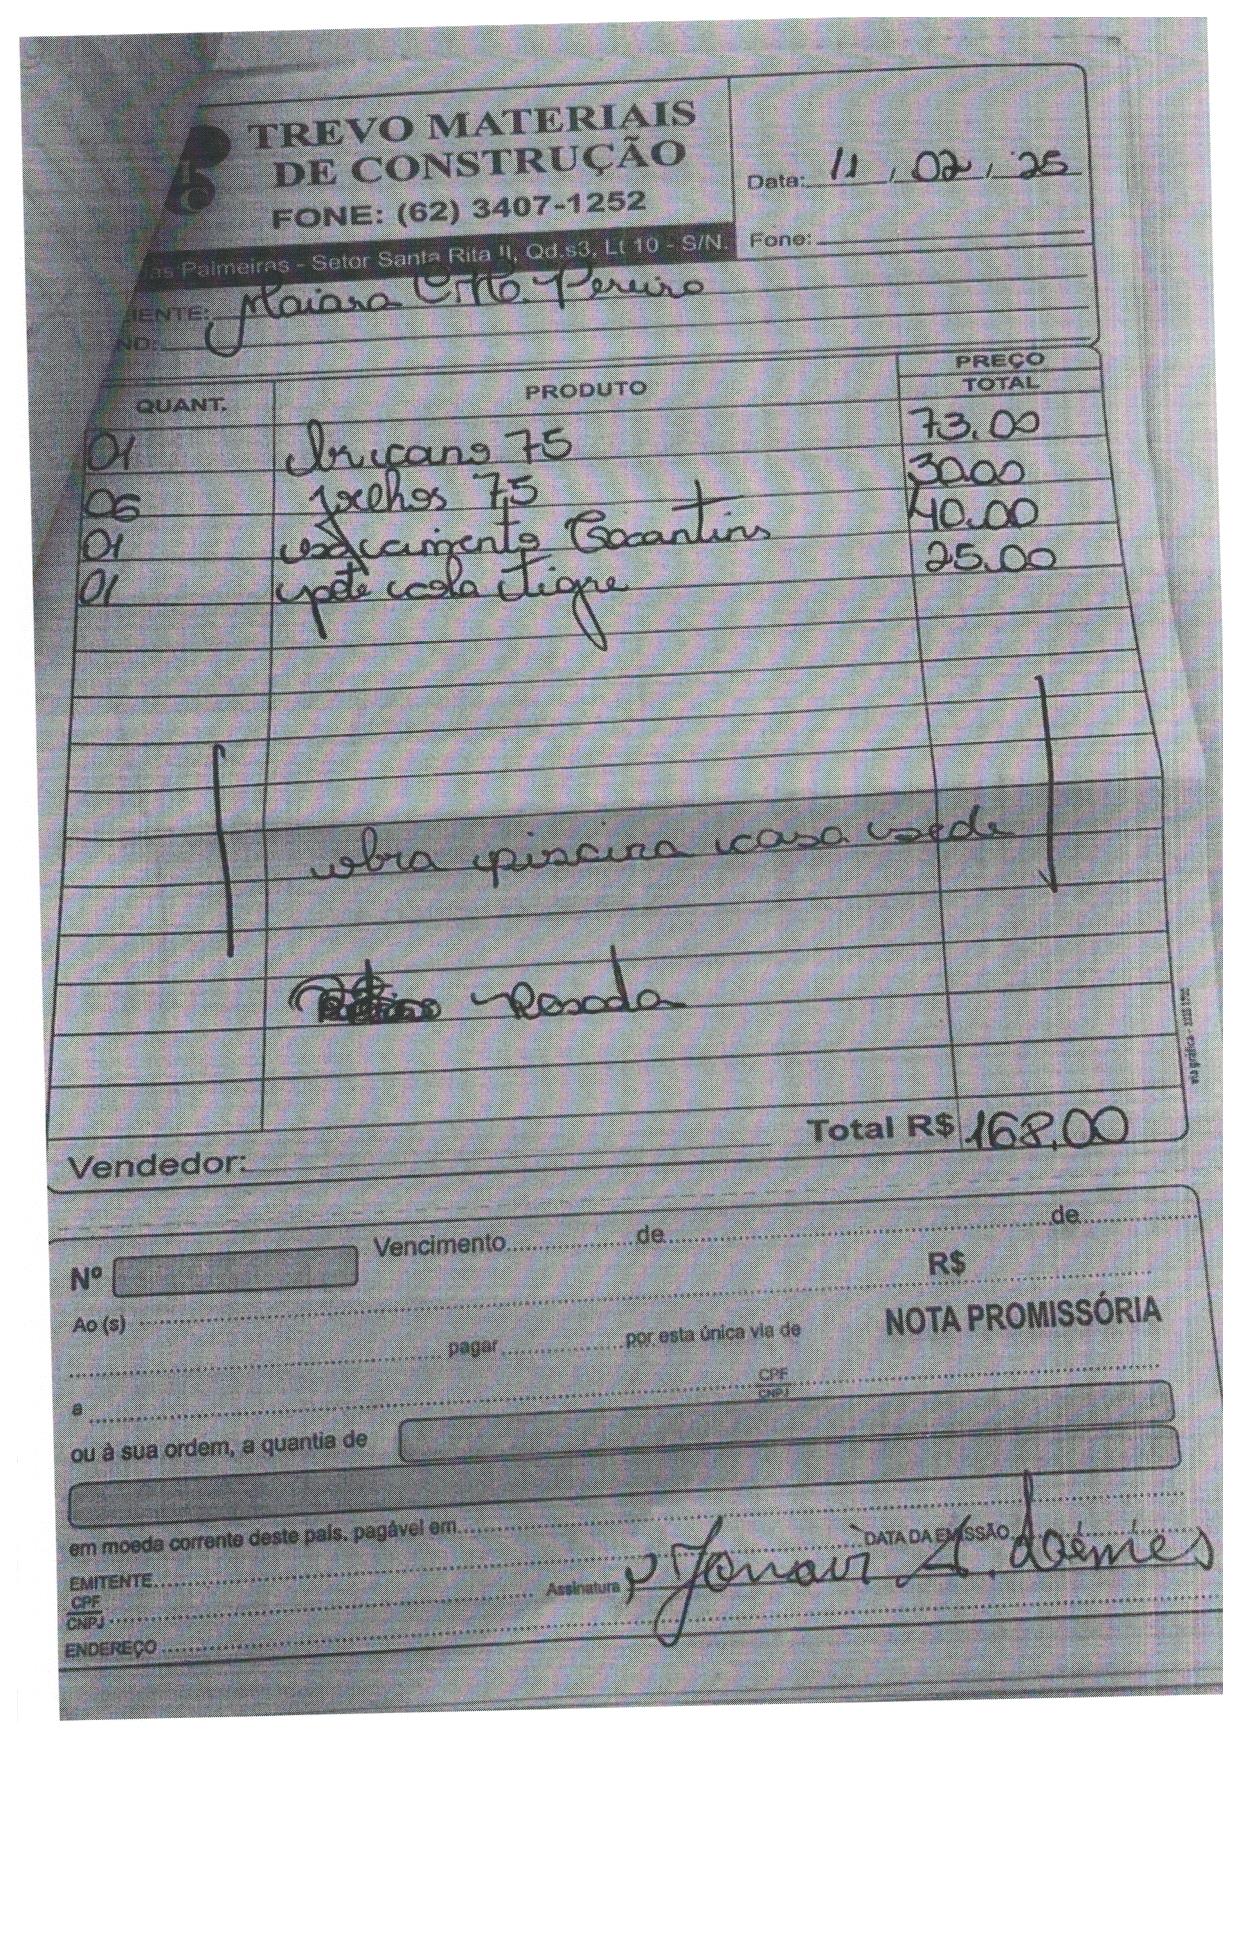 TREVO MATERIAIS
DE CONSTRUÇÃO
FONE: (62) 3407-1252
as Palmeiras - Setor Santa Rita II, Qd.s3, Lt 10 - S/N.
Data: 11 / 02 / 25
Fone:
IENTE: Maiara Pereira
ND:
QUANT. PRODUTO PREÇO TOTAL
01 75 73.00
06 joelhos 75 30.00
01 cimento Tocantins 40.00
01 pote cola tigre 25.00
obra piscina casa sede
Rosada
via gráfica -
Total R$ 168,00
Vendedor:
Nº Vencimento de de
R$
Ao (s)
NOTA PROMISSÓRIA
pagar por esta única via de
a CPF
CNPJ
ou à sua ordem, a quantia de
em moeda corrente deste país, pagável em
DATA DA EMISSÃO
EMITENTE
CPF
CNPJ
Assinatura
ENDEREÇO